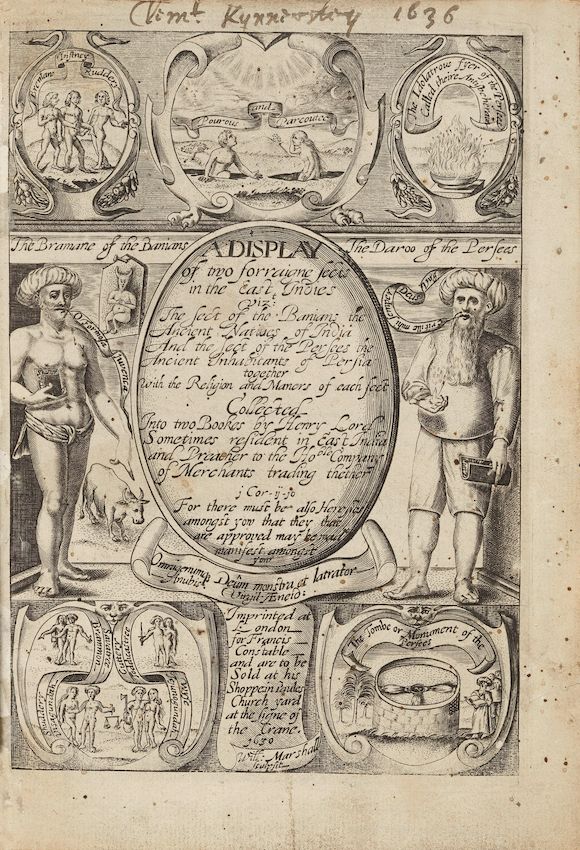 Clemt. Kynnersley 1636
Bremaw Vistney Rudderij
Pourous and Parcoutee
The Idolatrous fyer of the Persees
Called theire Antisbehaun
The Bramane of the Banians
The Daroo of the Persees
A DISPLAY
of two forraigne sects
in the East Indies
Vizt:
The sect of the Banians the
Ancient Natives of India
And the sect of the Persees the
Ancient Inhabitants of Persia
together
with the Religion and Maners of each sect
Collected
Into two Bookes by Henry Lord
Sometimes resident in East India
and Preacher to the Hoble Company
of Merchants trading thether
j Cor-ij-19
For there must be also Heresies
amongst yow that they that
are approved may be made
manifest amongst
yow
Omnigenumq Deum monstra, et latrator
Anubis Virgil Æneid:
Imprinted at
London
for Francis
Constable
and are to be
Sold at his
Shoppe in Paules
Church yard
at the signe of
the Crane.
1630
Will: Marshall
sculpsit
The Tombe or Monument of the
Persees